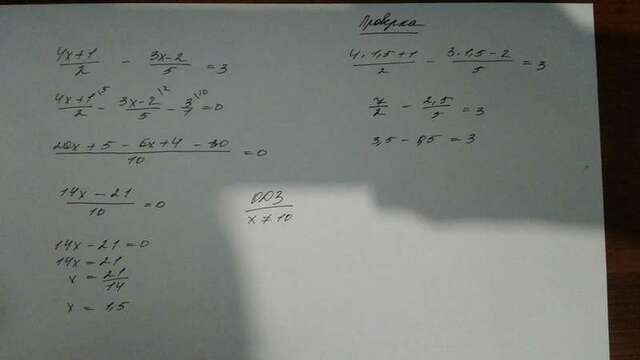 4x+1/2 - 3x-2/5 = 3
4x+1/2 \5 - 3x-2/5 \2 - 3/1 \10 = 0
20x + 5 - 6x + 4 - 30/10 = 0
14x - 21/10 = 0
14x - 21 = 0
14x = 21
x = 21/14
x = 1,5
ОДЗ
x ≠ 10
Проверка
4·1,5+1/2 - 3·1,5-2/5 = 3
7/2 - 2,5/5 = 3
3,5 - 0,5 = 3